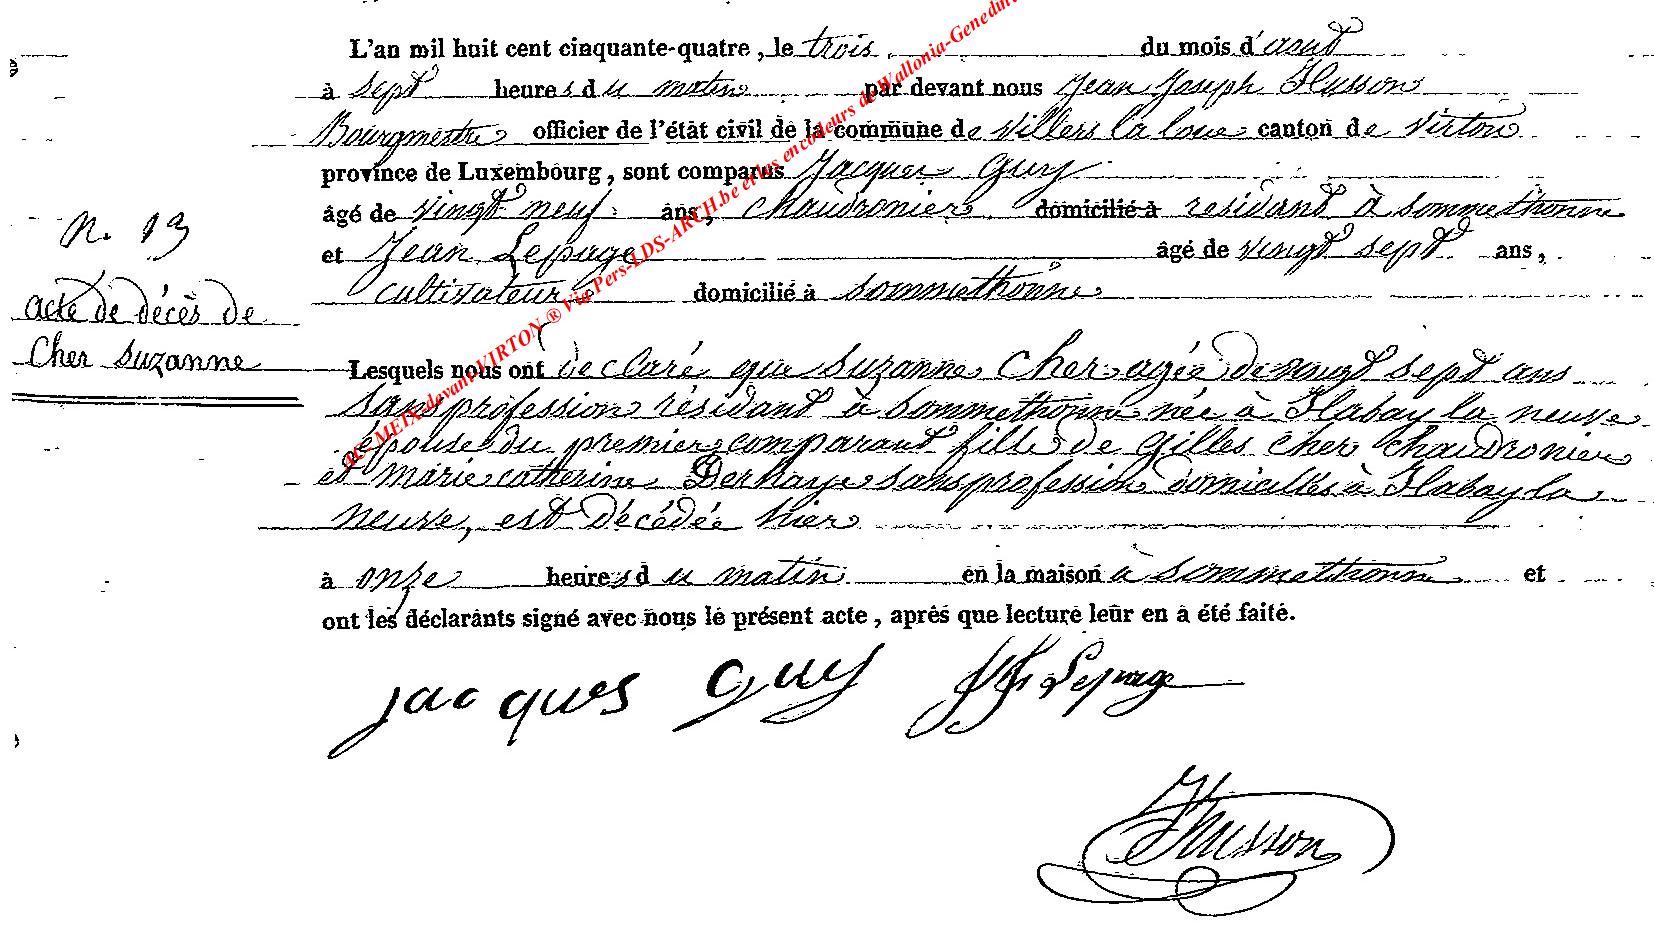 L'an mil huit cent cinquante-quatre, le trois du mois d'aout
à sept heures du matin par devant nous Jean Joseph Husson
Bourgmestre officier de l'état civil de la commune de Villers la loue canton de Virton
province de Luxembourg, sont comparus Jacques Guy
âgé de vingt neuf ans, chaudronier domicilié à residant à Sommethonne
et Jean Lepage âgé de vingt sept ans,
cultivateur domicilié à Sommethonne
N. 13
acte de décès de
Cher Suzanne
Lesquels nous ont declaré que Suzanne Cher agée de vingt sept ans
sans profession résidant à Sommethonne née à Habay la neuve
épouse du premier comparant fille de Gilles Cher chaudronier
et Marie catherine Derhaye sans profession domicilés à Habay la
neuve, est décédée hier
à onze heures du matin en la maison à Sommethonne et
ont les déclarants signé avec nous le présent acte, après que lecture leur en a été faite.
jacques Guy Lepage
Husson
MEIX-devant-VIRTON ® Via Pers-LDS-ARCH.be et les encodeurs de Wallonia-Genedinfo